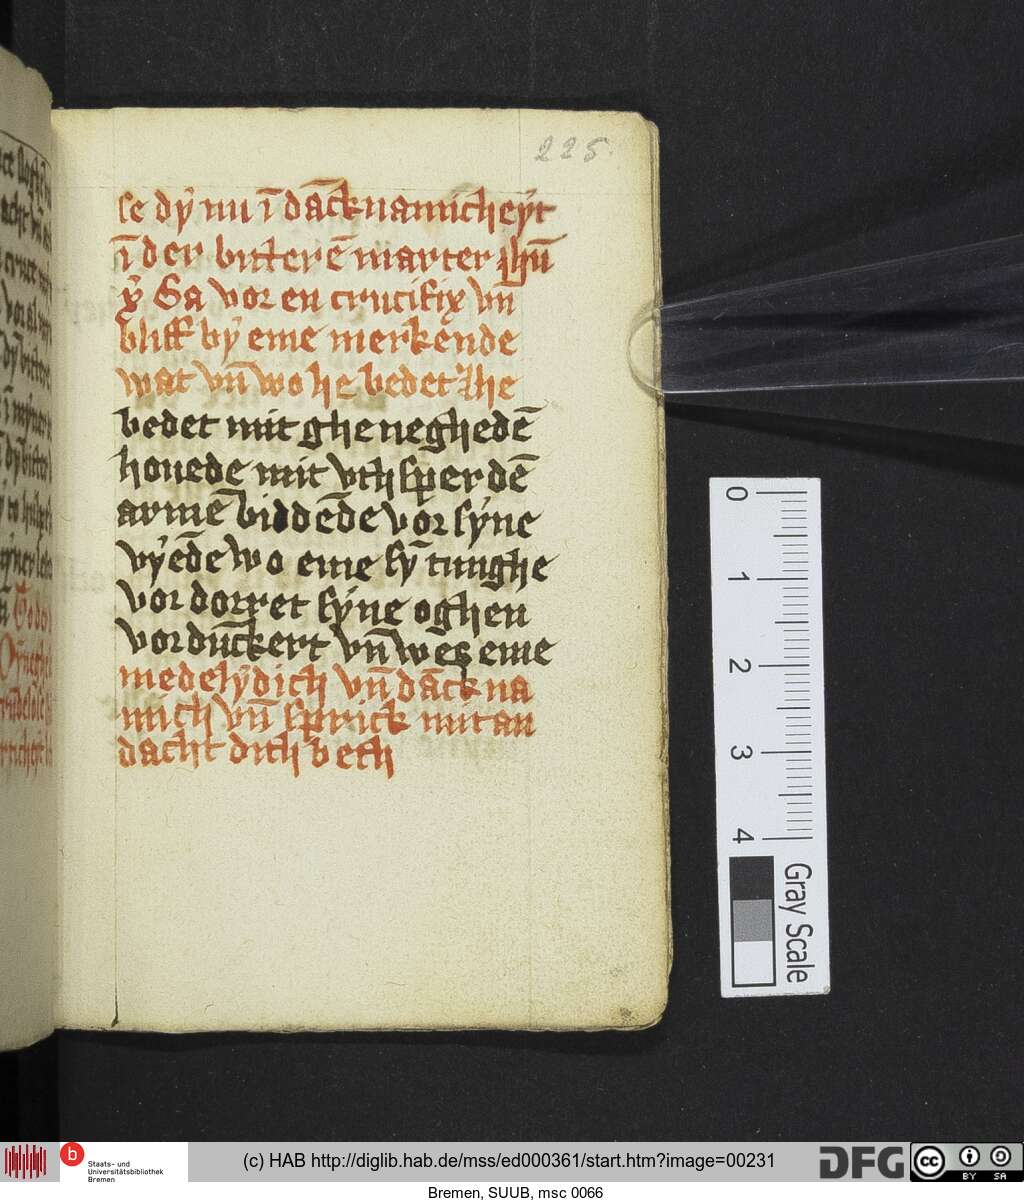 225
se dy̍ nu ī dāck namicheyt
ī der bitterē marter ihū
xp̄i Ga vor en crucifix vn̄
bliff by̍ eme merkēnde
wat vn̄ wo he bedet he
bedet mit ghe neghedē
houede mit vth sperdē
armē biddēde vor sy̍ne
vy̍ēde wo eme sȳ tunghe
vor dorret sy̍ne oghen
vordūckert vn̄ wes eme
medely̍dich vn̄ dāck na
mich vn̄ sprick mit an
dacht dith beth
0
1
2
3
4
Gray Scale
b Staats- und
Universitätsbibliothek
Bremen
(c) HAB http://diglib.hab.de/mss/ed000361/start.htm?image=00231
DFG
cc BY SA
Bremen, SUUB, msc 0066